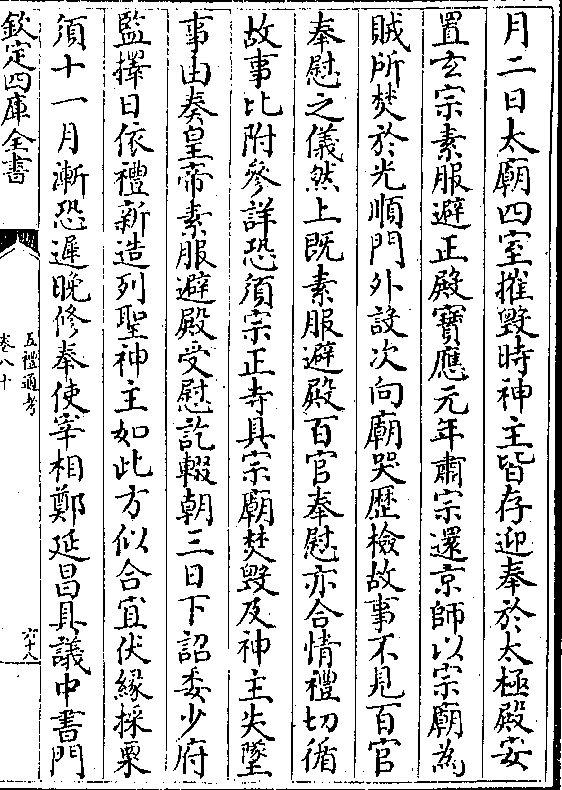 月二日太廟四室摧毀時神主皆存迎奉於太極殿安
置玄宗素服避正殿寶應元年肅宗還京師以宗廟為
賊所焚於光順門外設次向廟哭歷檢故事不見百官
奉慰之儀然上既素服避殿百官奉慰亦合情禮切循
故事比附參詳恐須宗正寺具宗廟焚毀及神主失墜
事由奏皇帝素服避殿受慰訖輟朝三日下詔委少府
監擇日依禮新造列聖神主如此方似合宜伏緣採栗
須十一月漸恐遲晚修奉使宰相鄭延昌具議中書門
欽定四庫全書
五禮通考
卷八十
六十八